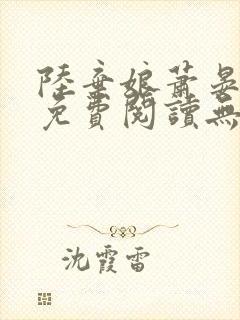 陸棄娘蕭晏
免費閱讀無
沈霞雷